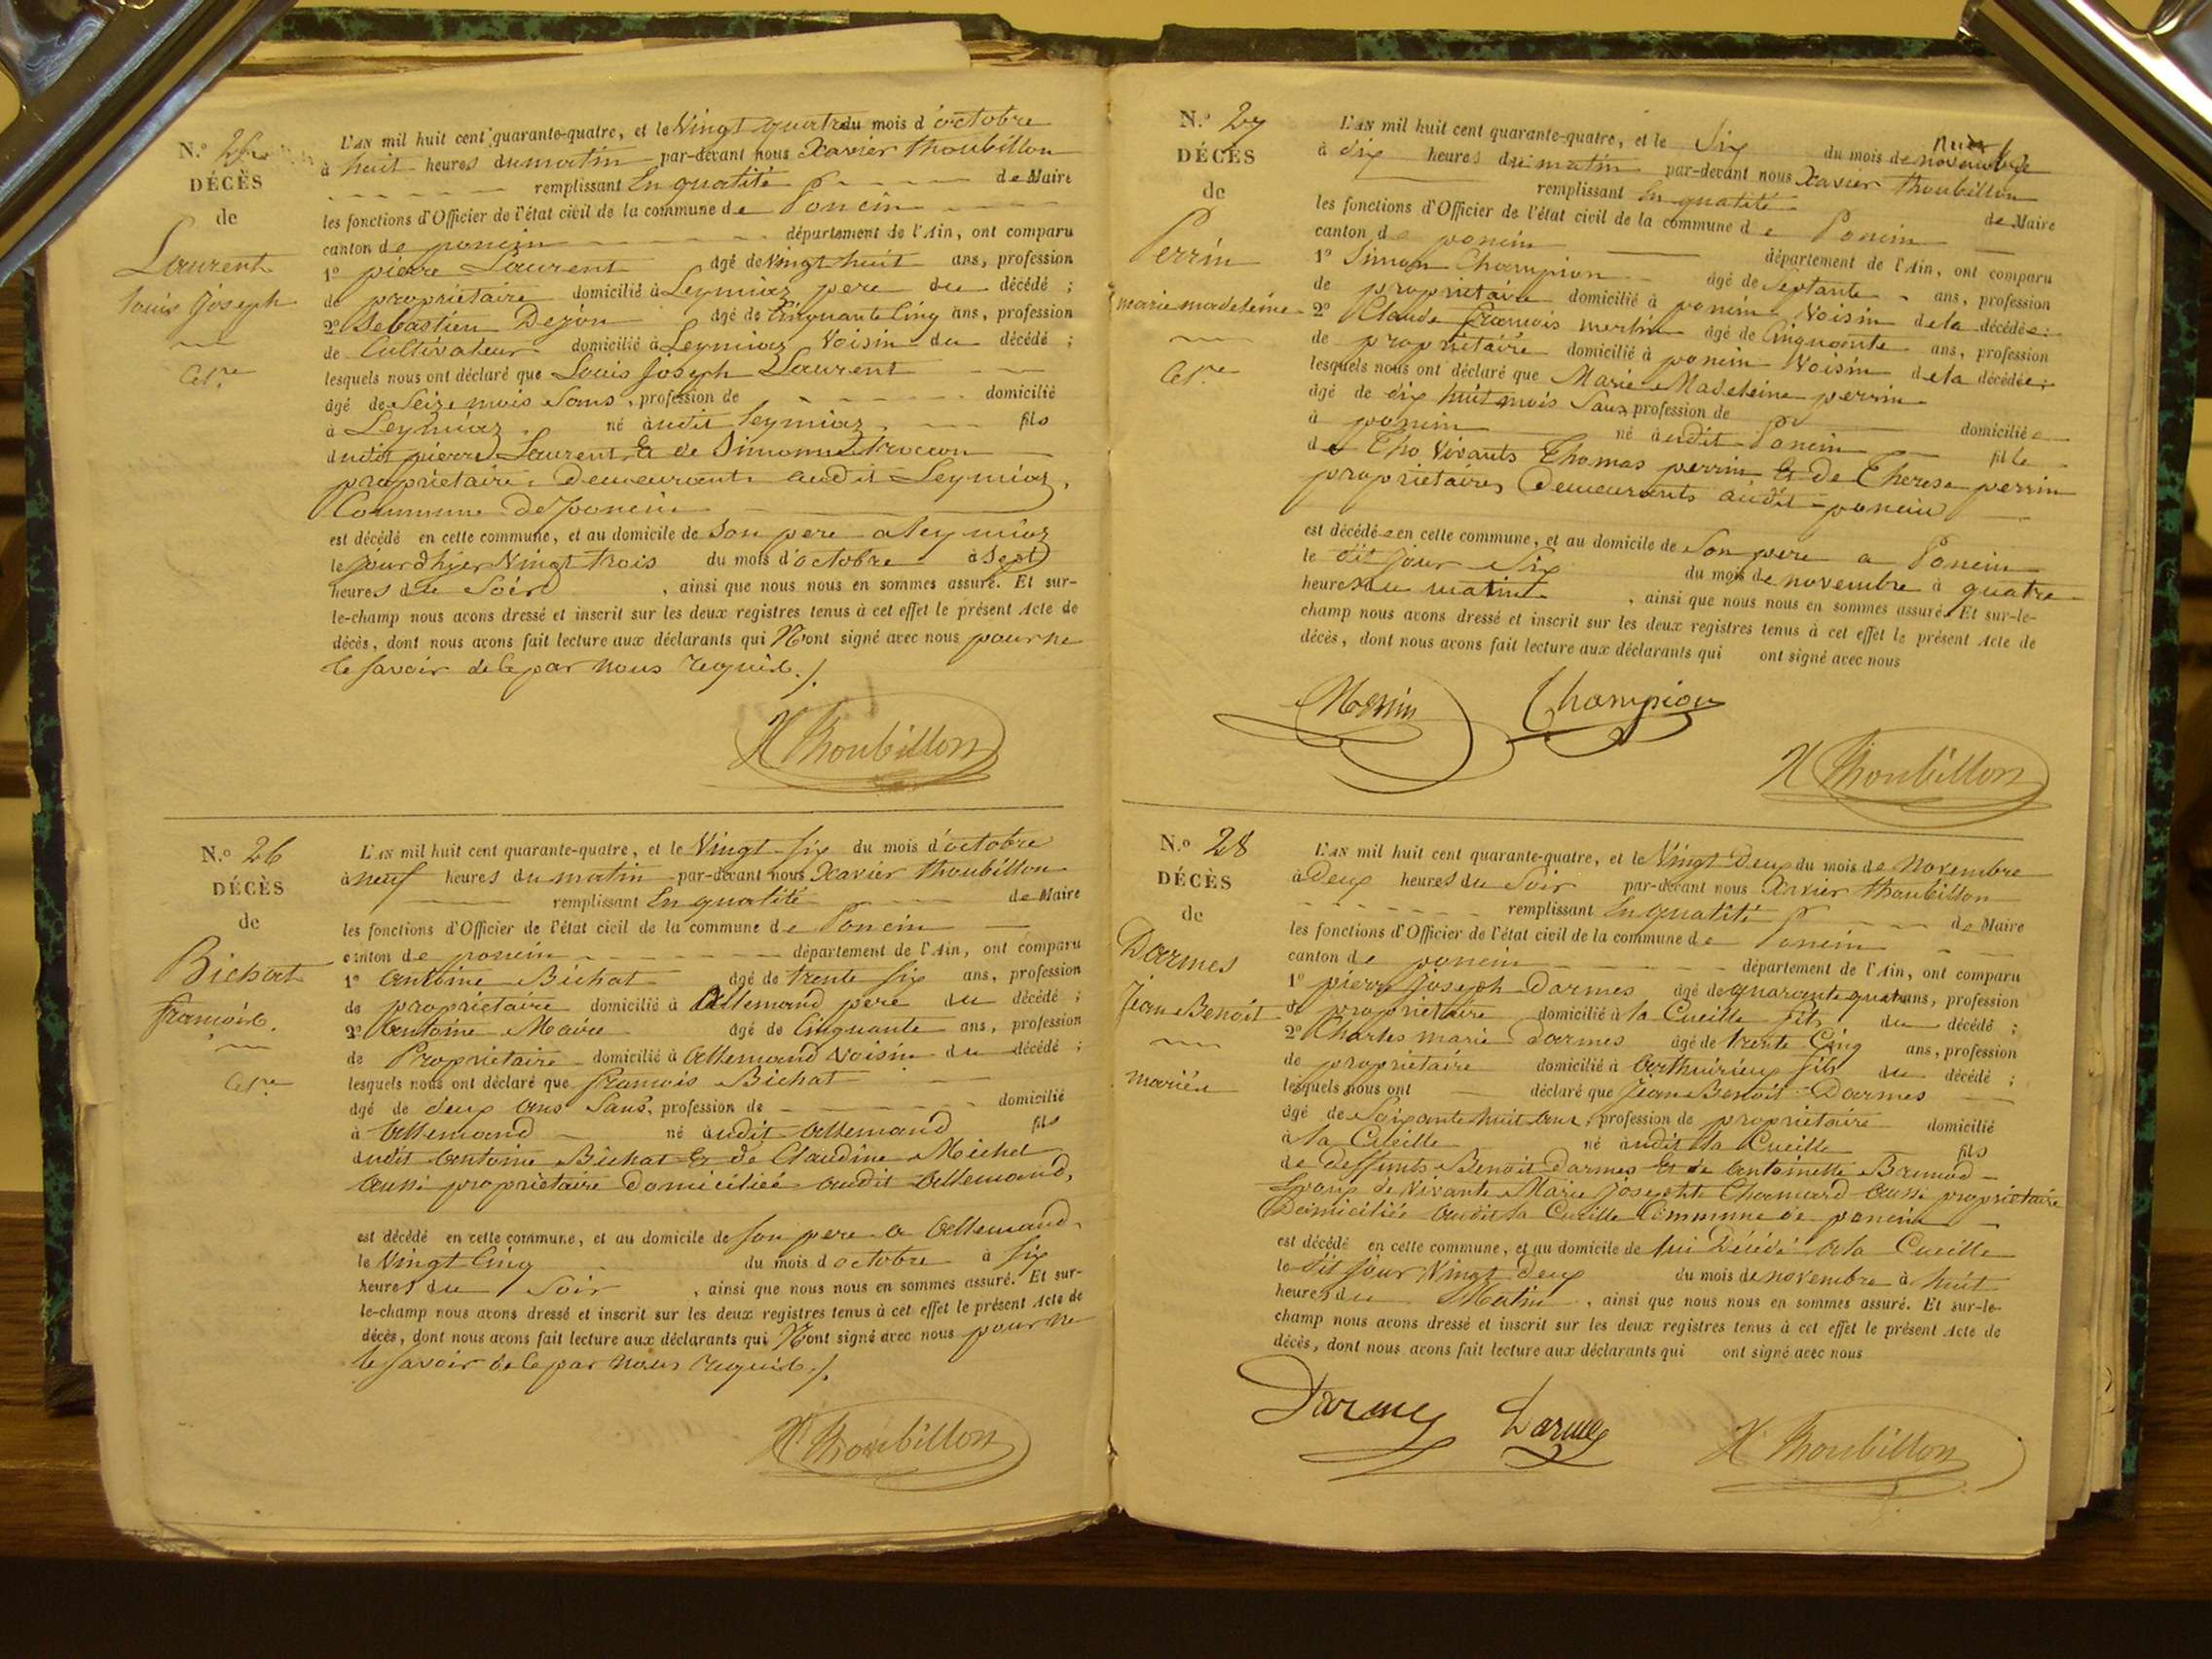 N.º 25
DÉCÈS
de
Laurent
louis joseph
Cel.re
L'AN mil huit cent quarante-quatre, et le Vingt quatre du mois d'octobre
à huit heures du matin par-devant nous Xavier Thoubillon
remplissant En qualité de Maire
les fonctions d'Officier de l'état civil de la commune de Poncin
canton de poncin département de l'Ain, ont comparu
1º pierre Laurent âgé de Vingt huit ans, profession
de propriétaire domicilié à Leymiaz pere du décédé ;
2º Sebastien Dejon âgé de Cinquante Cinq ans, profession
de Cultivateur domicilié à Leymiaz Voisin du décédé ;
lesquels nous ont déclaré que Louis Joseph Laurent
âgé de Seize mois Sans, profession de domicilié
à Leymiaz né audit leymiaz fils
dudit pierre Laurent Et de Simonne
propriétaire, Demeurants audit Leymiaz,
Commune De poncin
est décédé en cette commune, et au domicile de Son pere a leymiaz
le jour d'hier Vingt trois du mois d'octobre à Sept
heures du Soir, ainsi que nous nous en sommes assuré. Et sur-
le-champ nous avons dressé et inscrit sur les deux registres tenus à cet effet le présent Acte de
décès, dont nous avons fait lecture aux déclarants qui N'ont signé avec nous pour ne
le savoir de Ce par nous requis./.
X Thoubillon
N.º 26
DÉCÈS
de
Bichat
françois.
Cel.re
L'AN mil huit cent quarante-quatre, et le Vingt Six du mois d'octobre
à neuf heures du matin par-devant nous Xavier Thoubillon
remplissant En qualité de Maire
les fonctions d'Officier de l'état civil de la commune de Poncin
canton de poncin département de l'Ain, ont comparu
1º Antoine Bichat âgé de trente Six ans, profession
de propriétaire domicilié à Allemand pere du décédé ;
2º Antoine Maire âgé de Cinquante ans, profession
de Propriétaire domicilié à Allemand Voisin du décédé ;
lesquels nous ont déclaré que françois Bichat
âgé de deux ans Sans, profession de domicilié
à Allemand né audit Allemand fils
dudit Antoine Bichat Et de Claudine Michel
Aussi propriétaire Domiciliée audit Allemand,
est décédé en cette commune, et au domicile de Son pere a Allemand
le Vingt Cinq du mois d'octobre à Six
heures du Soir, ainsi que nous nous en sommes assuré. Et sur-
le-champ nous avons dressé et inscrit sur les deux registres tenus à cet effet le présent Acte de
décès, dont nous avons fait lecture aux déclarants qui N'ont signé avec nous pour ne
le savoir de Ce par nous requis./.
X Thoubillon
N.º 27
DÉCÈS
de
Perrin
marie madeleine
Cel.re
L'AN mil huit cent quarante-quatre, et le Six du mois de novembre
à dix heures du matin par-devant nous Xavier Thoubillon
remplissant En qualité de Maire
les fonctions d'Officier de l'état civil de la commune de Poncin
canton de poncin département de l'Ain, ont comparu
1º Simon Champion âgé de Septante ans, profession
de propriétaire domicilié à poncin Voisin de la décédée ;
2º Claude françois merlin âgé de Cinquante ans, profession
de propriétaire domicilié à poncin Voisin de la décédée ;
lesquels nous ont déclaré que Marie Madeleine perrin
âgé de dix huit mois Sans, profession de domiciliée
à poncin né audit Poncin fille
de Vivants Thomas perrin Et De Therese perrin
propriétaires Demeurants audit poncin
est décédée en cette commune, et au domicile de Son pere a Poncin
le dit jour Six du mois de novembre à quatre
heures du matin, ainsi que nous nous en sommes assuré. Et sur-le-
champ nous avons dressé et inscrit sur les deux registres tenus à cet effet le présent Acte de
décès, dont nous avons fait lecture aux déclarants qui ont signé avec nous
Champion
X Thoubillon
N.º 28
DÉCÈS
de
Darmes
Jean Benoit
marié
L'AN mil huit cent quarante-quatre, et le Vingt Deux du mois de Novembre
à Deux heures du Soir par-devant nous Xavier Thoubillon
remplissant En qualité de Maire
les fonctions d'Officier de l'état civil de la commune de Poncin
canton de poncin département de l'Ain, ont comparu
1º pierre Joseph Darmes âgé de quarante quatre ans, profession
de propriétaire domicilié à la Cueille fils du décédé ;
2º Charles marie Darmes âgé de trente Cinq ans, profession
de propriétaire domicilié à Arthurieux fils du décédé ;
lesquels nous ont déclaré que Jean Benoit Darmes
âgé de Soixante huit ans, profession de propriétaire domicilié
à la Cueille né audit la Cueille fils
de Deffunts Benoit Darmes Et de Antoinette
Epoux de Vivante Marie Josephte Chamard Aussi propriétaire
Domiciliée audit la Cueille Commune de poncin
est décédé en cette commune, et au domicile de lui Décédé A la Cueille
le dit jour Vingt Deux du mois de novembre à huit
heures du Matin, ainsi que nous nous en sommes assuré. Et sur-le-
champ nous avons dressé et inscrit sur les deux registres tenus à cet effet le présent Acte de
décès, dont nous avons fait lecture aux déclarants qui ont signé avec nous
Darmes Darmes X Thoubillon